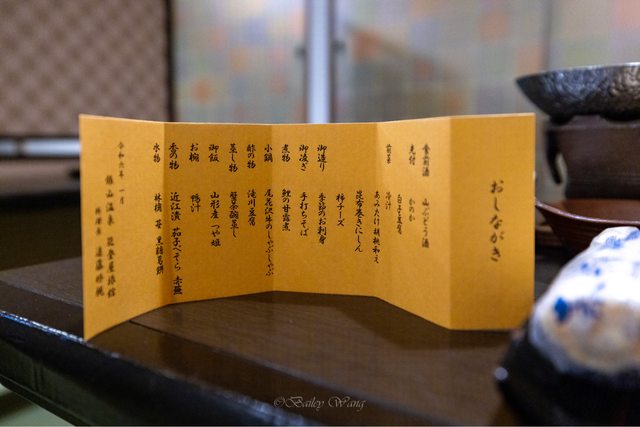 おしながき
食前酒 山ぶどう酒
先付 かのか
白子豆腐
前菜 冷汁
あみたけ胡桃和え
昆布巻きにしん
柿チーズ
御造り 季節のお刺身
御凌ぎ 手打ちそば
煮物 鯉の甘露煮
小鍋 尾花沢牛のしゃぶしゃぶ
酢の物 滝川豆腐
蒸し物 蟹茶碗蒸し
御飯 山形産 つや姫
お椀 鴨汁
香の物 近江漬 茄子ぺそら 赤蕪
水物 林檎 苺 黒糖葛餅
令和六年 一月
銀山温泉 能登屋旅館
料理長
©Bailey Wang